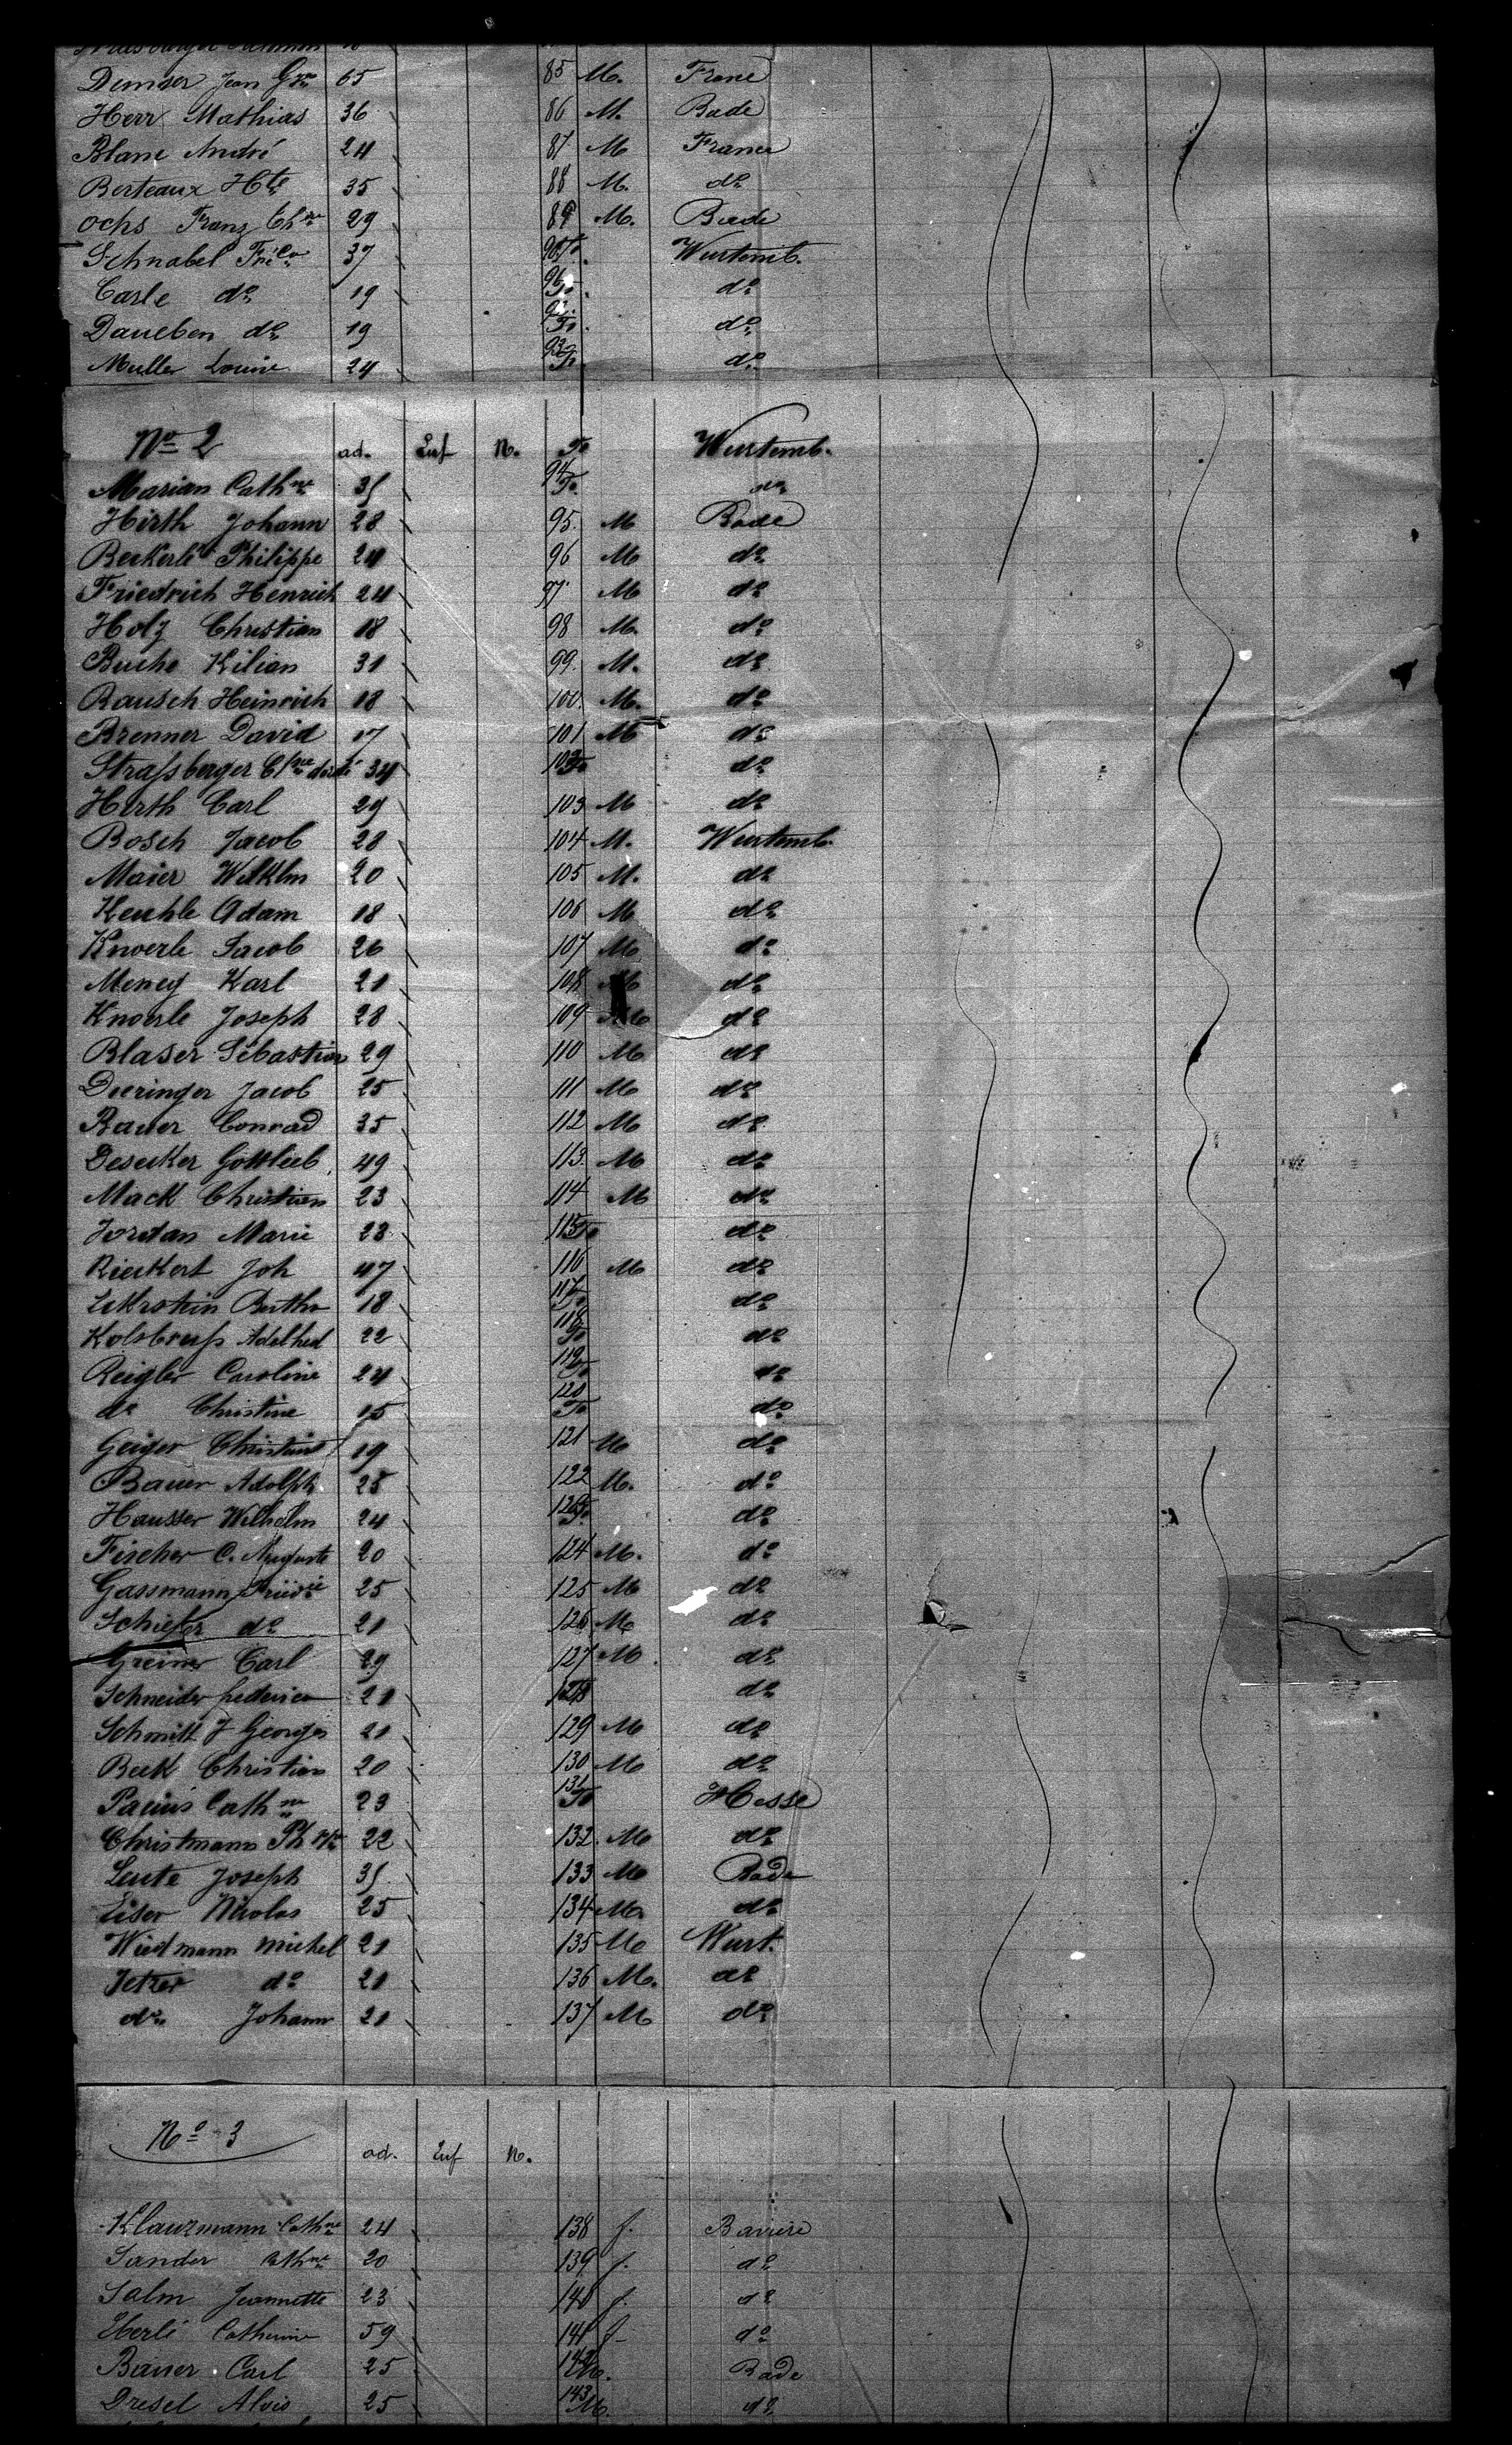 Demser Jean 65 85 M. Franc
Herr Mathias 36 86 M. Bade
Blanc André 24 87 M France
Berteaux Hte 35 88 M. do
Ochs Franz Chne 29 89 M. Bade
Schnabel 37 90 Fe Wurtemb.
Carle do 19 Fe do
Daueben do 19 Fe do
Muller Louise 24 93 Fe do
No 2 ad. Enf N. Fe Wurtemb.
Marian Cathne 35 94 Fe do
Hirth Johann 28 95. M Bade
Beckerle Philippe 24 96 M do
Friedrich Henrich 24 97 M do
Holz Christian 18 98 M. do
Buche Kilian 31 99. M. do
Rausch Heinrich 18 100. M. do
Brenner David 17 101 M do
Straßberger 34 102 Fe do
Hirth Carl 29 103 M do
Bosch Jacob 28 104 M. Wurtemb.
Maier Wilhlm 20 105 M. do
Keuhle Adam 18 106 M do
Knoerle Jacob 26 107 M do
Meney Karl 21 108 M do
Knoerle Joseph 28 109 M do
Blaser Sebastian 29 110 M do
Dieringer Jacob 25 111 M do
Bauer Conrad 35 112 M do
Desecker Gottlieb 49 113. M do
Mack Christian 23 114 M do
Jordan Marie 28 115 Fe do
Rieckert Joh 47 116 M do
Eckrstein Bertha 18 117 Fe do
Adelhed 22 118 Fe do
Reigler Caroline 24 119 Fe do
do Christine 15 120 Fe do
Geiger Christian 19 121 M do
Bauer Adolph 25 122 M. do
Hausser Wilhelm 24 123 Fe do
Fischer C. Auguste 20 124 M. do
Gassmann 25 125 M do
Schiefer do 21 126 M do
Greiner Carl 29 127 M. do
Schneider frederica 21 128 do
Schmitt J Georges 21 129 M do
Beck Christian 20 130 M do
Pacius Cathne 23 131 Fe Hesse
Christmann Ph 22 132. M do
Leute Joseph 35 133 M Bade
Eisor Nicolas 25 134 M. do
Wiedmann Michel 21 135 M Wurt.
Jetzer do 21 136 M. do
do Johann 21 137 M do
No 3 ad. Enf N.
Klauzmann Cathne 24 138 f. Baviere
Sander Cathne 20 139 f. do
Salm Jeannette 23 140 f. do
Eberlé Catherine 59 141 f do
Bauer Carl 25 142 M. Bade
Dresel Alois 25 143 M. do